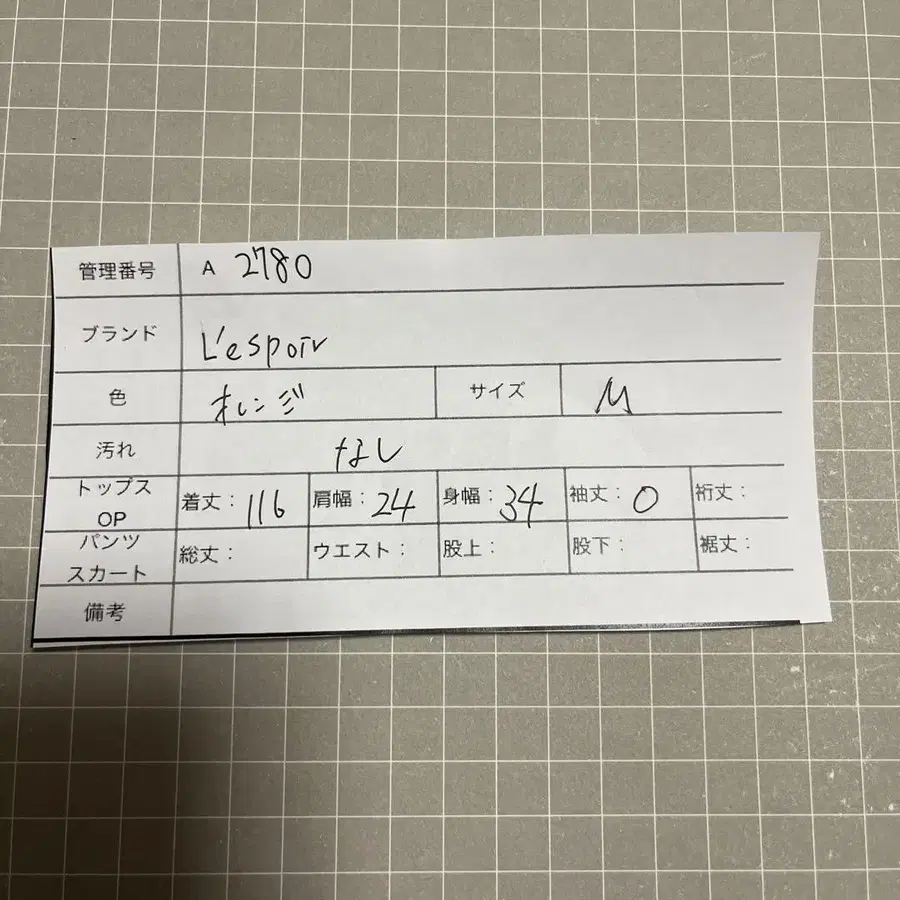 管理番号 A 2780
ブランド L'espoir
色 オレンジ サイズ M
汚れ なし
トップス OP 着丈: 116 肩幅: 24 身幅: 34 袖丈: 0 裄丈:
パンツ スカート 総丈: ウエスト: 股上: 股下: 裾丈:
備考